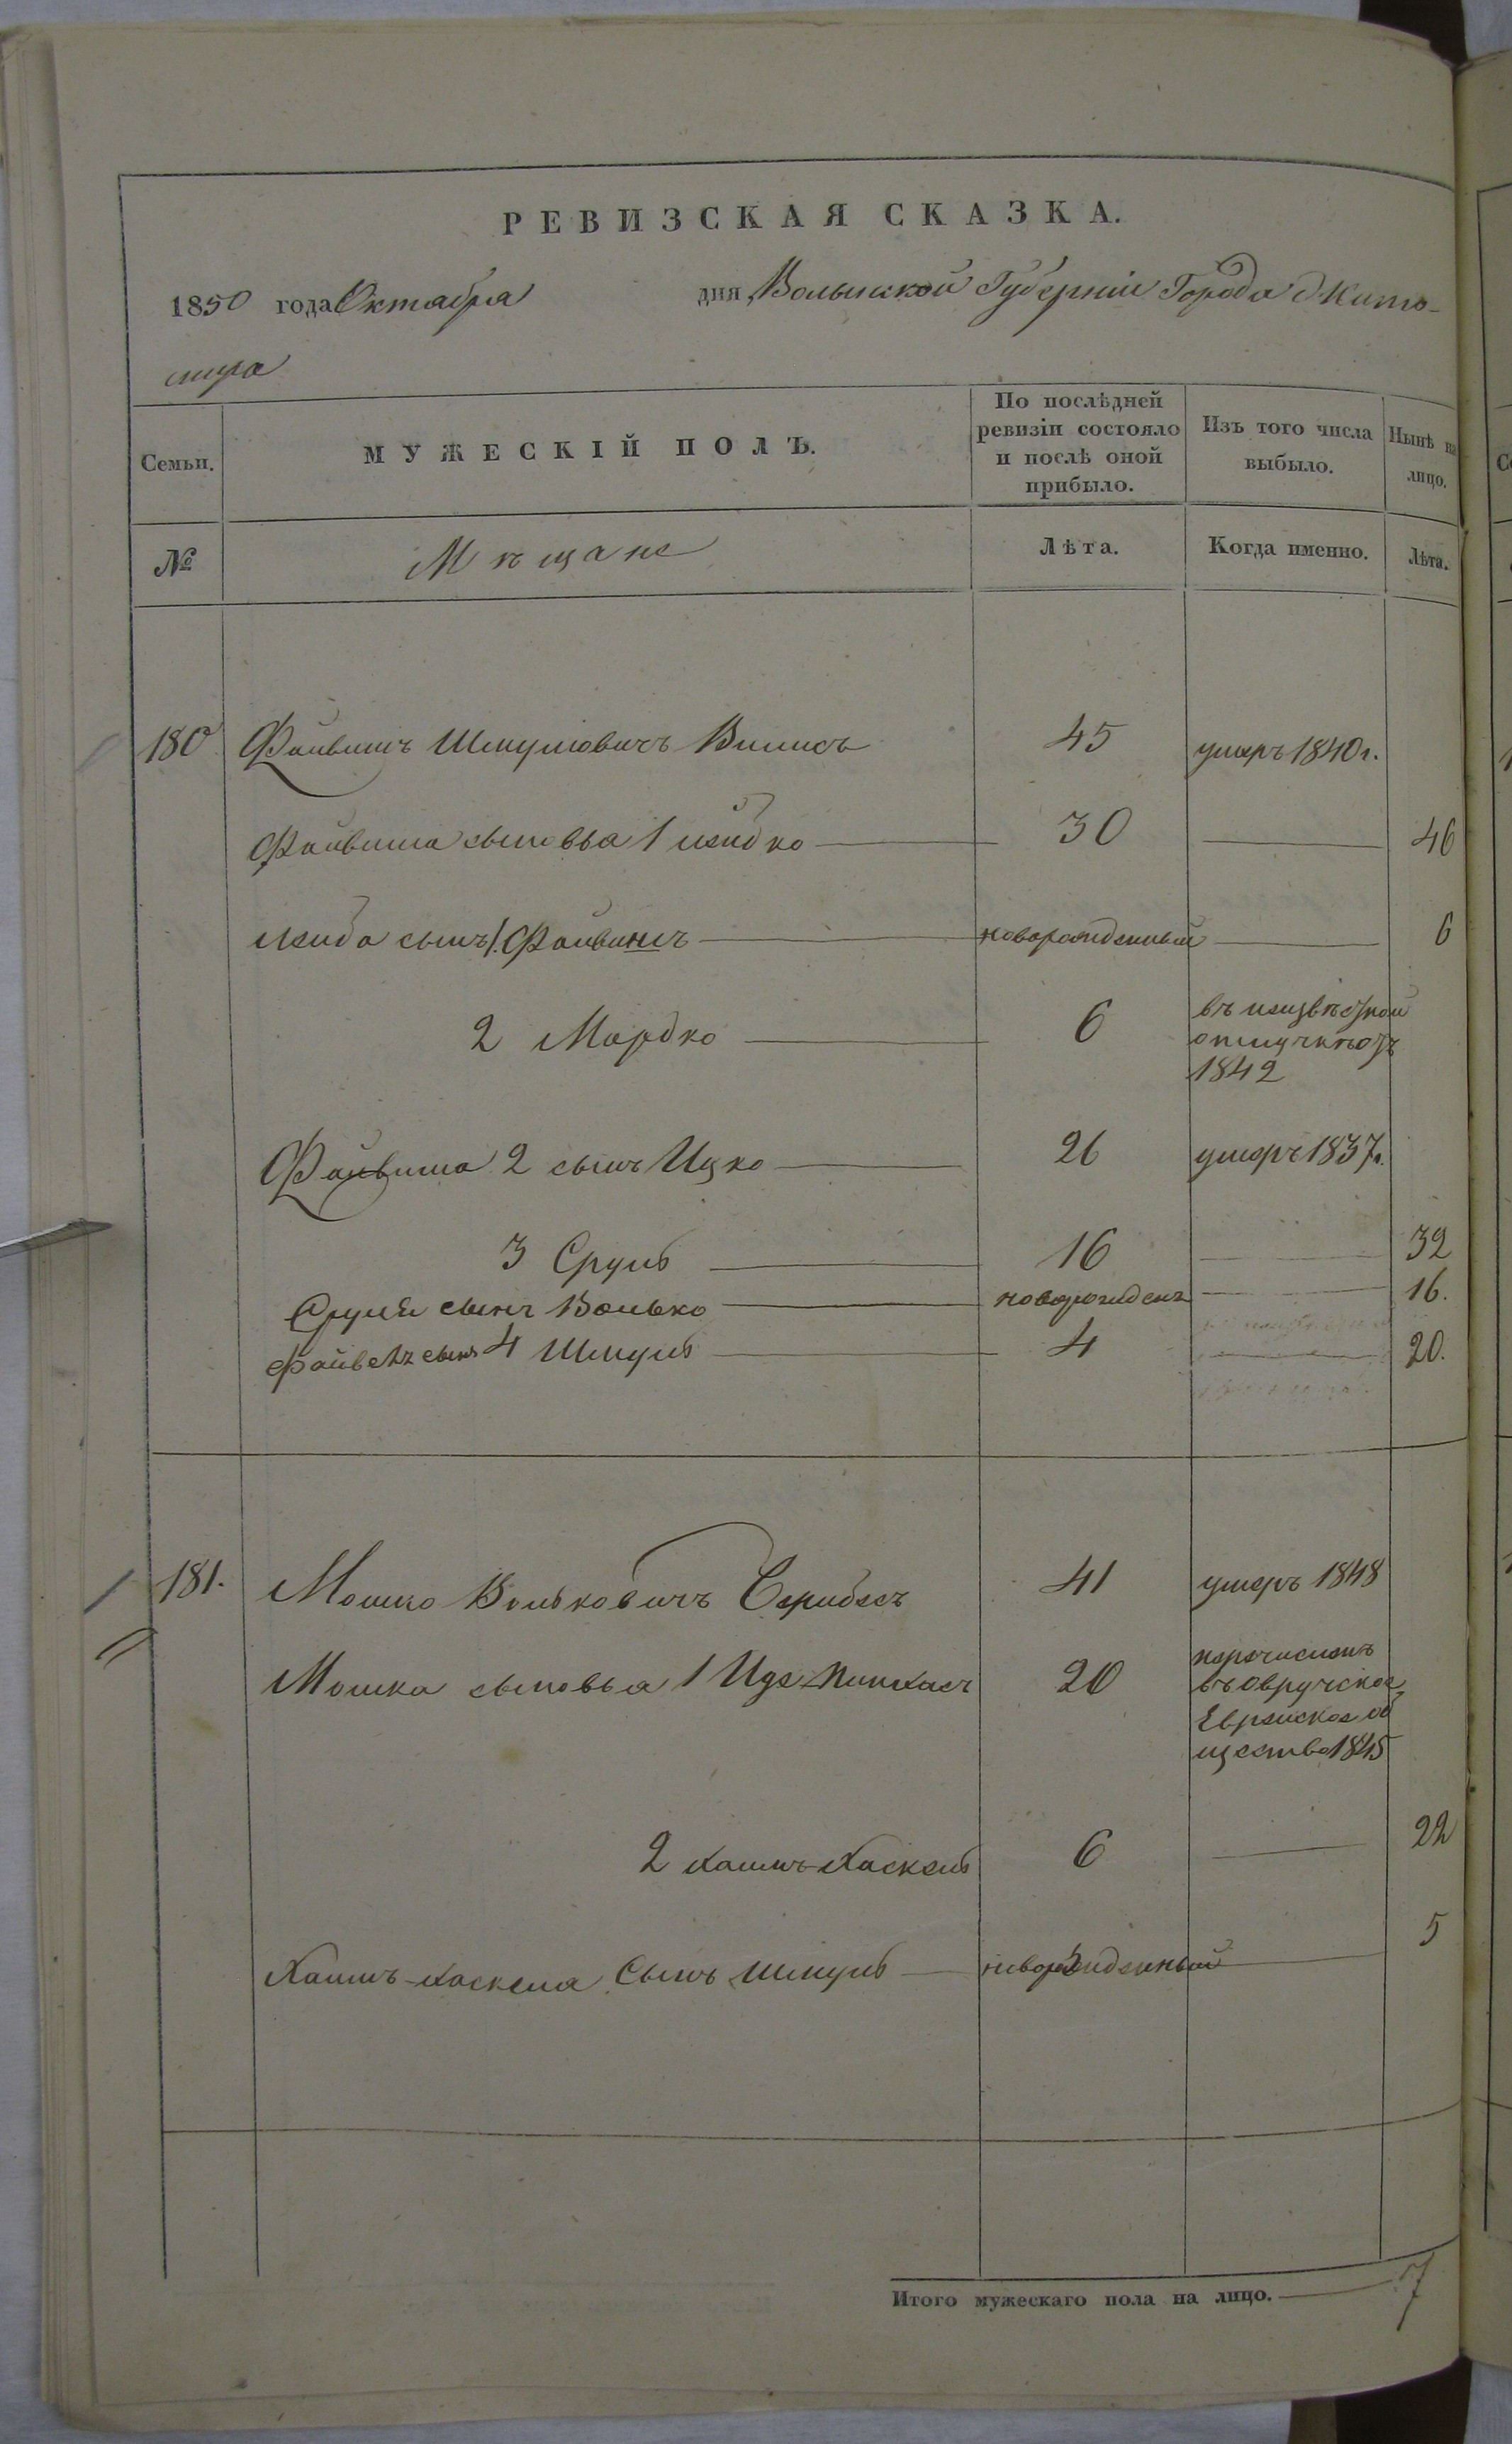 РЕВИЗСКАЯ СКАЗКА.
1850 года Октября дня Волынской Губерніи Города Жито-
мира
Семьи. МУЖЕСКІЙ ПОЛЪ. По послѣдней ревизіи состояло и послѣ оной прибыло. Изъ того числа выбыло. Нынѣ на лицо.
№ Мѣщане Лѣта. Когда именно. Лѣта.
180 Файвишъ Шмулювичъ 45 умеръ 1840 г.
Файвиша сыновья 1 30 46
сынъ 1. Файвишъ новорожденный 6
2 Мордко 6 въ неизвѣстной
отлучкѣ отъ
1842
Файвиша 2 сынъ Ицко 26 умеръ 1837 г.
3 Сруль 16 32
Сруля сынъ Волько новорожденъ 16.
сынъ 4 Шмуль 4 20.
181. Мошко Вольковичъ 41 умеръ 1848
Мошка сыновья 1 Пинхасъ 20 перечисленъ
въ Овручское
Еврейское об
щество 1845
2 Хаимъ-Хаскель 6 22
Хаимъ-Хаскеля Сынъ Шмуль новорожденный 5
Итого мужескаго пола на лицо. 7